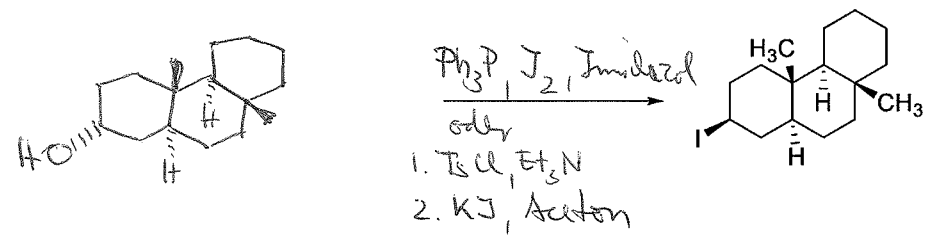 Ph3P, J2, Imidazol
oder
1. TsCl, Et3N
2. KJ, Aceton
HO
H
H
H3C
H
CH3
I
H